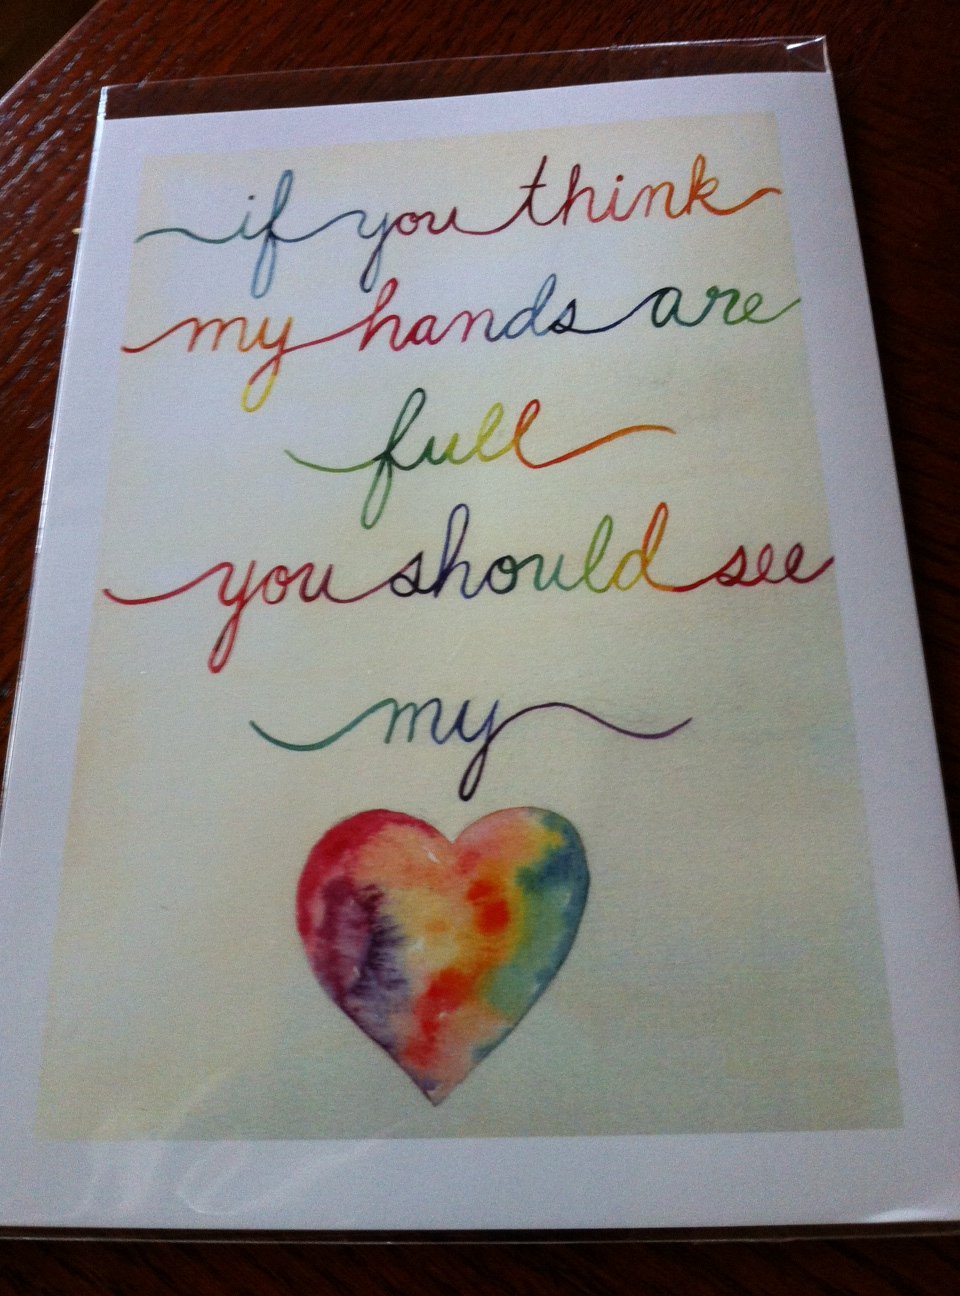 if you think
my hands are
full
you should see
my